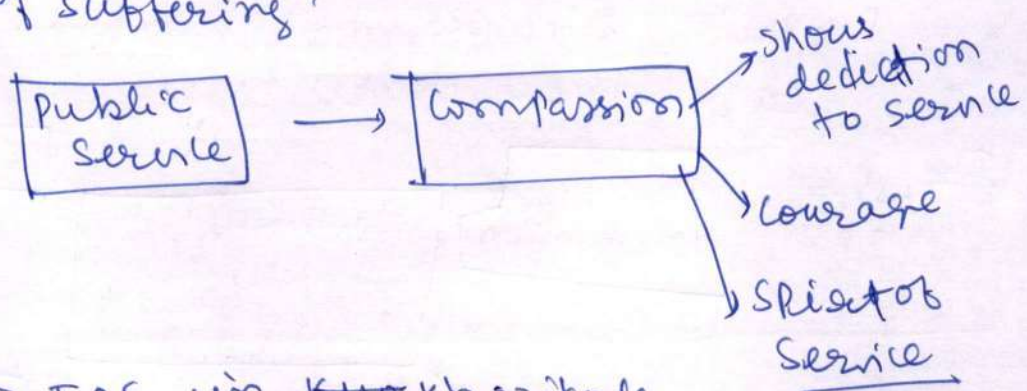 of suffering
Public
Service
Compassion
shows
dediction
to service
Courage
Spirit of
Service